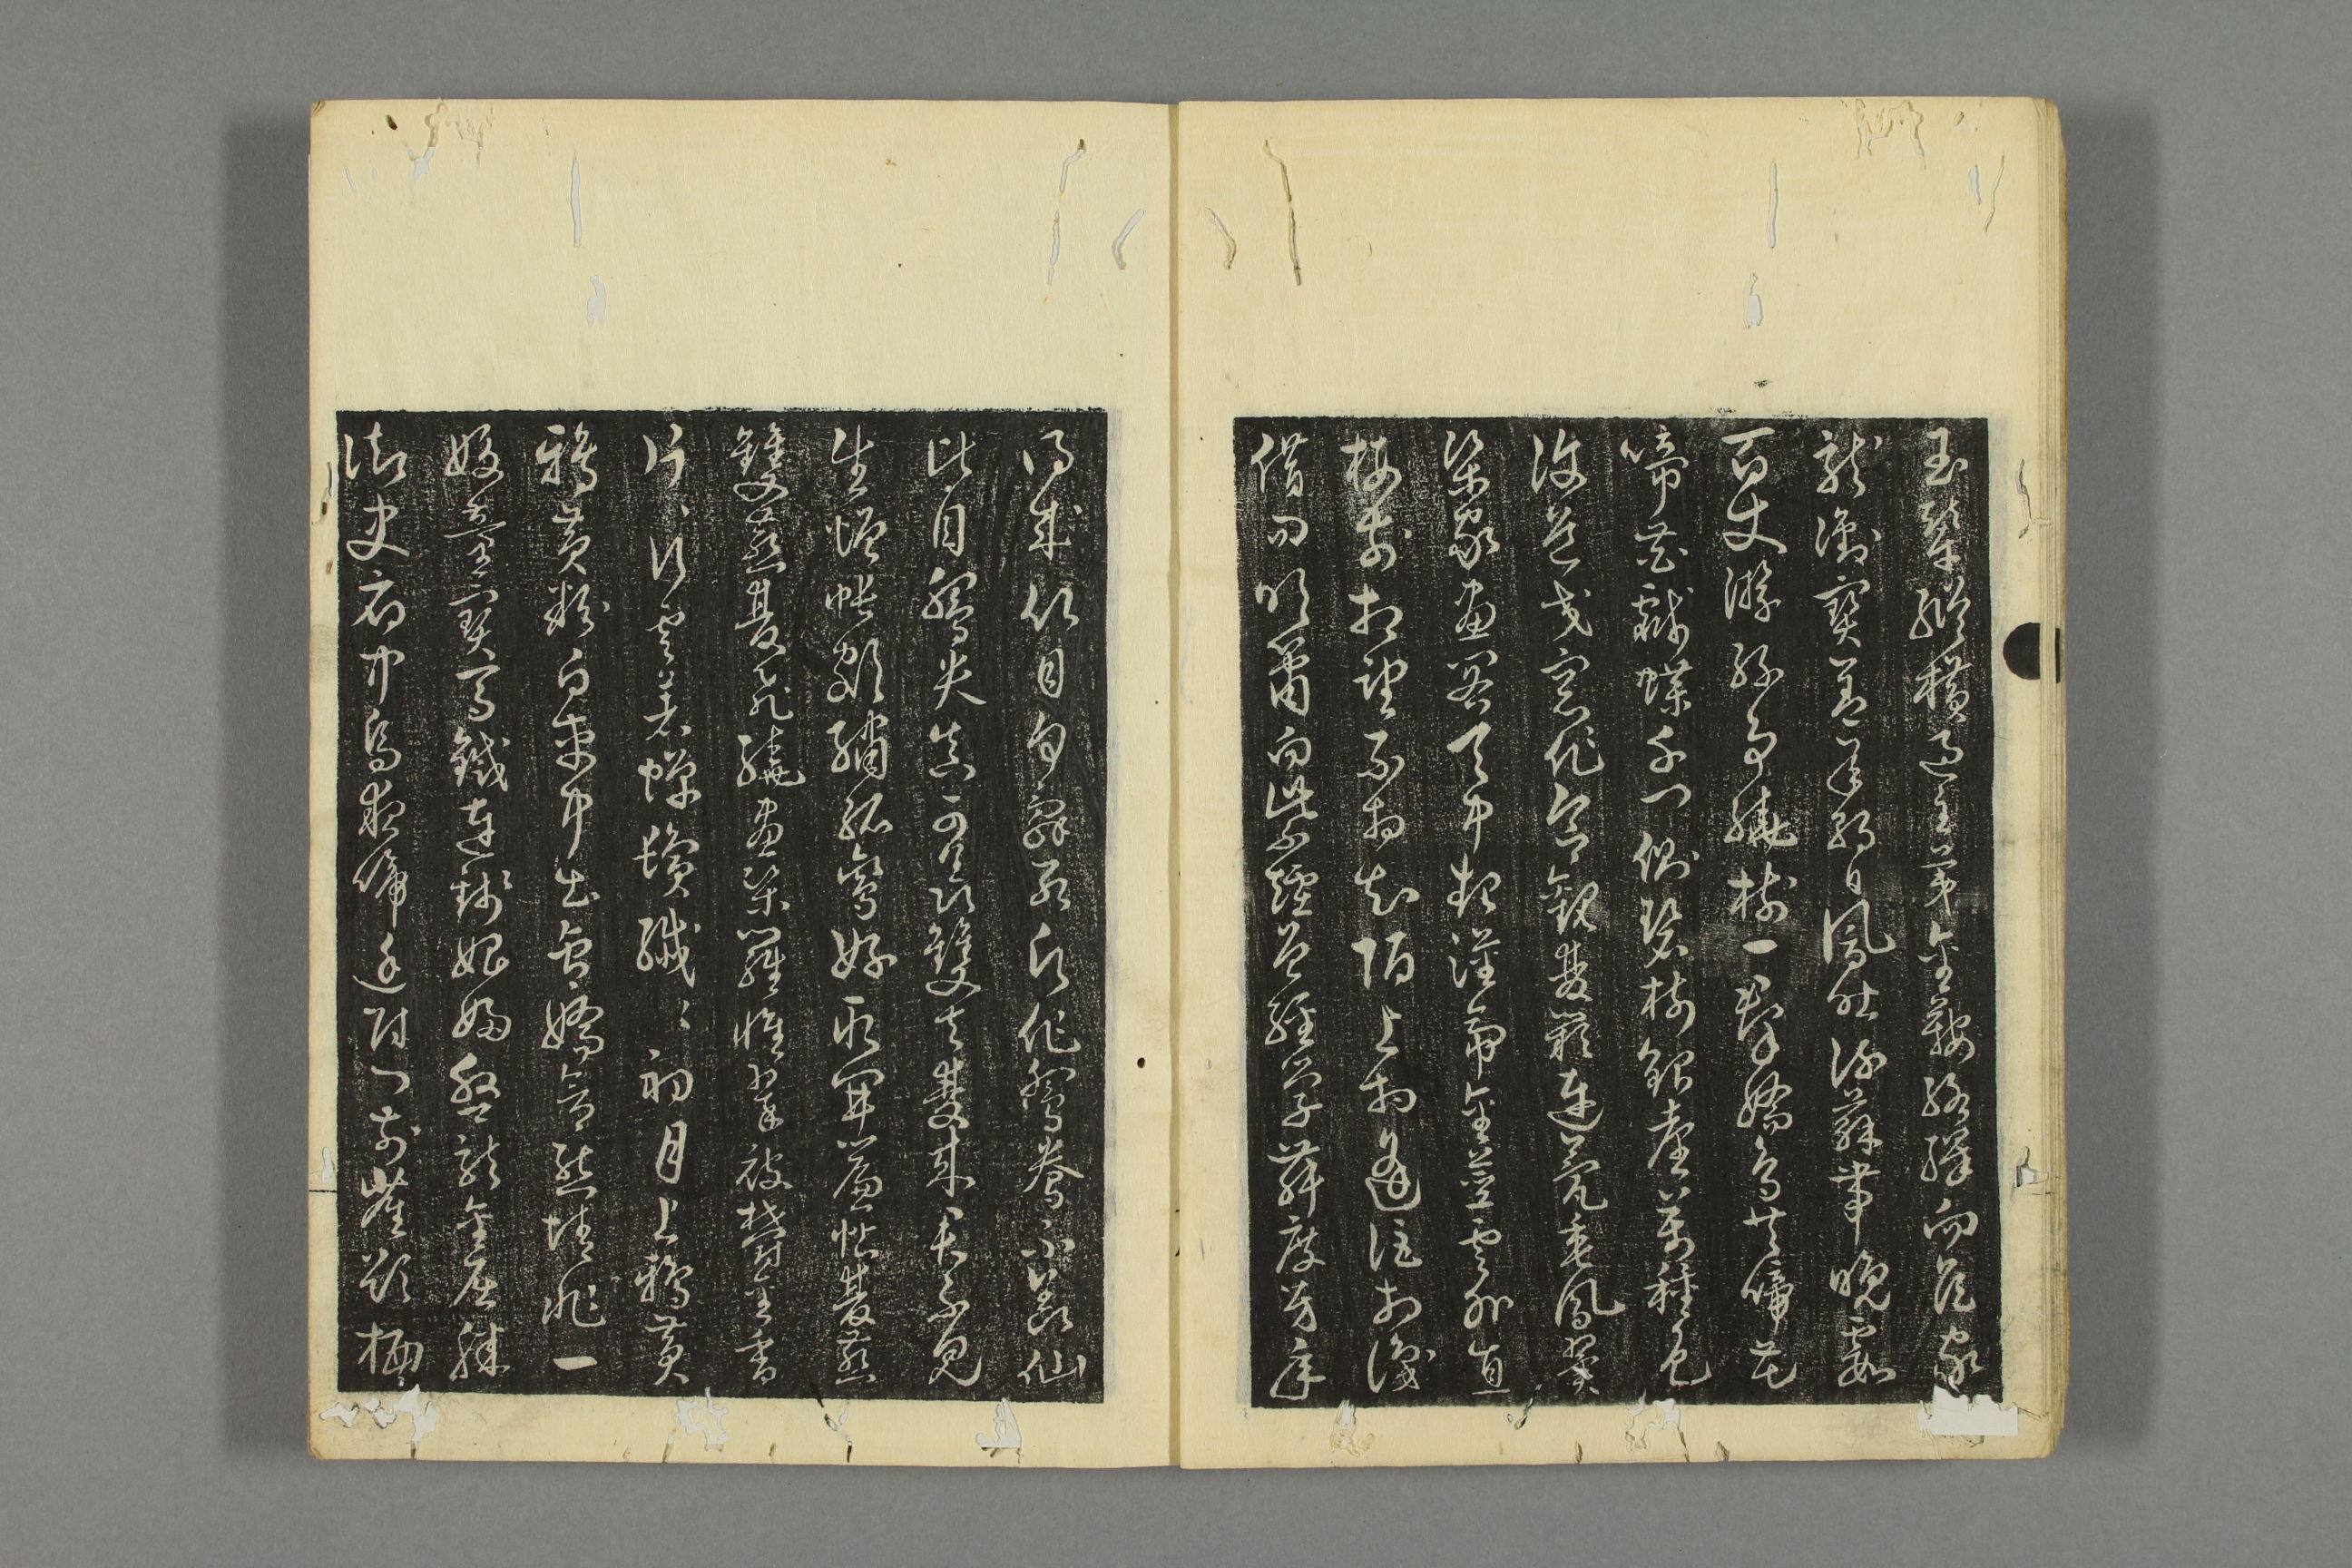 玉輦縱橫過主第金鞍絡繹向侯家
龍銜寶蓋承朝日鳳吐流蘇帶晚霞
百丈游絲爭繞樹一群嬌鳥共啼花
啼花戲蝶千門側碧樹銀臺萬種色
複道交窗作合歡雙闕連甍垂鳳翼
梁家畫閣天中起漢帝金莖雲外直
樓前相望不相知陌上相逢詎相識
借問吹簫向紫煙曾經學舞度芳年
得成比目何辭死願作鴛鴦不羨仙
比目鴛鴦真可羨雙去雙來君不見
生憎帳額繡孤鸞好取開簾帖雙燕
雙燕雙飛繞畫梁羅帷翠被鬱金香
片〻行雲著蟬鬢纖〻初月上鴉黃
鴉黃粉白車中出含嬌含態情非一
妖童寶馬鐵連錢娼婦盤龍金屈膝
御史府中烏夜啼廷尉門前雀欲栖